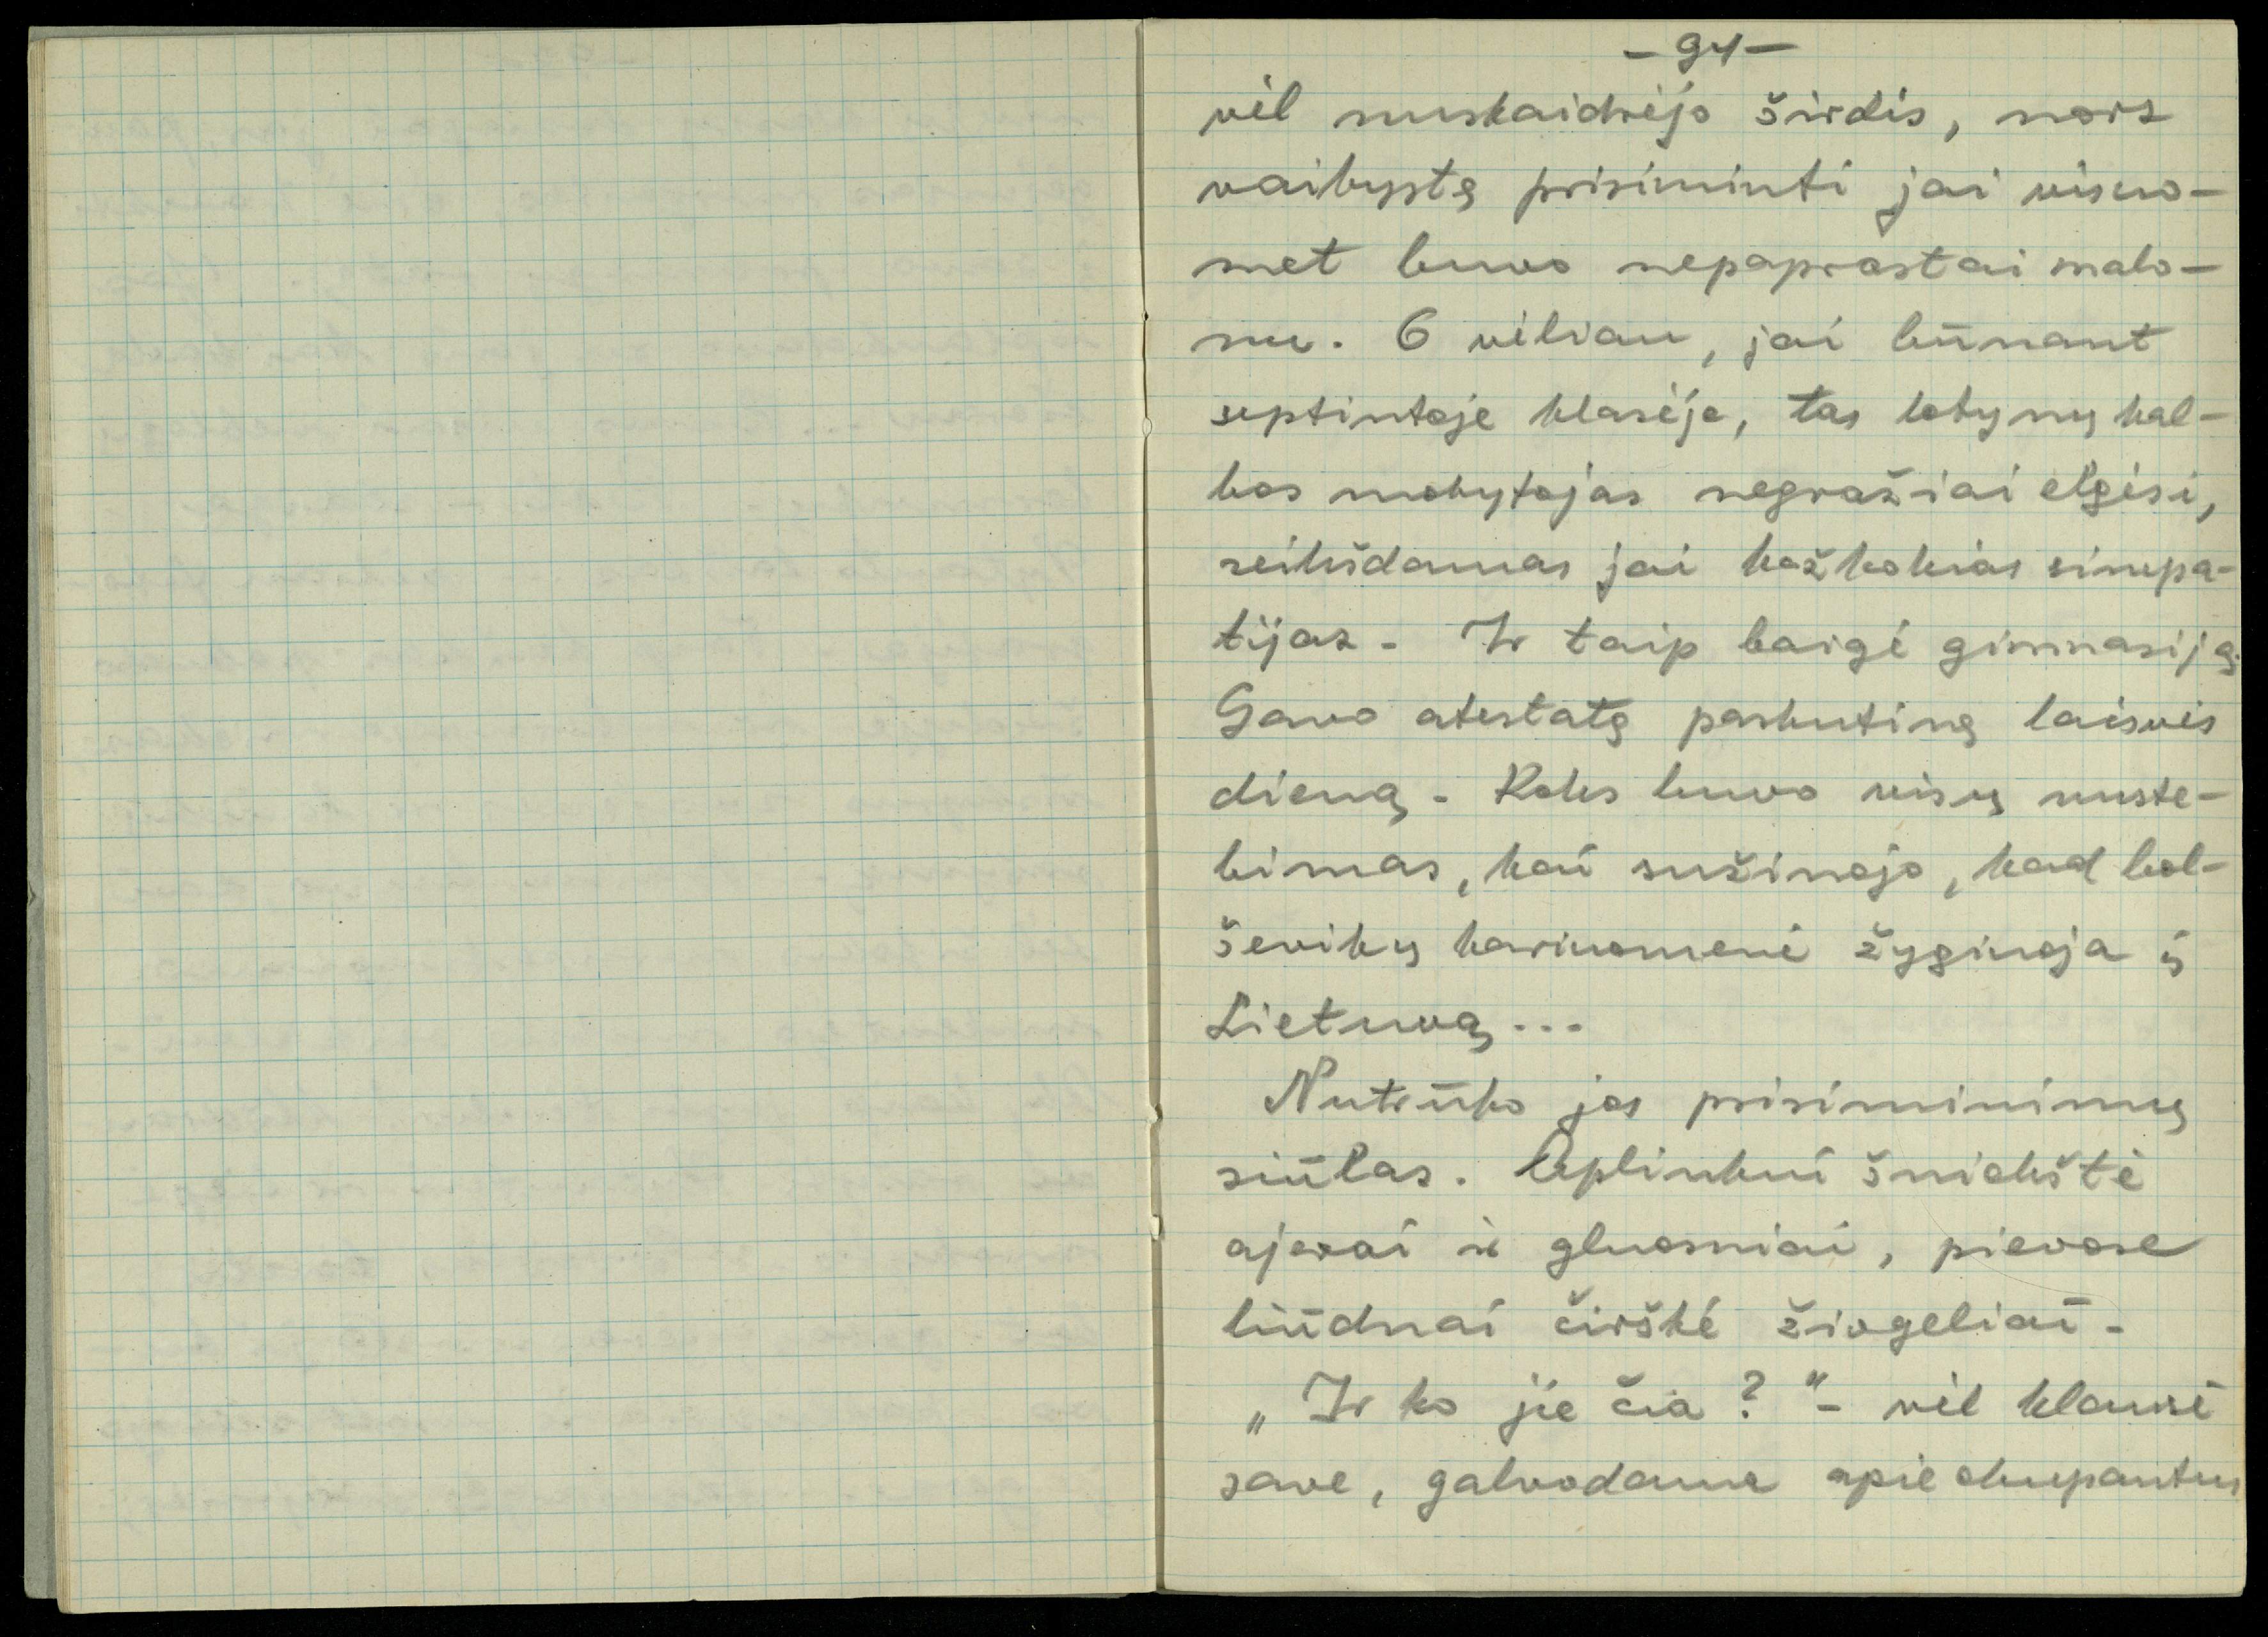 - 94 -
vėl nuskaidrėjo širdis, nors
vaikystę prisiminti jai visuo-
met buvo nepaprastai malo-
nu. O vėliau, jai būnant
septintoje klasėje, tas lotynų kal-
bos mokytojas negražiai elgėsi,
reikšdamas jai kažkokias simpa-
tijas. Ir taip baigė gimnasiją.
Gavo atestatą paskutinę laisvės
dieną. Koks buvo visų nuste-
bimas, kai sužinojo, kad bol-
ševikų kariuomenė žygiuoja į
Lietuvą...
Nutrūko jos prisiminimų
siūlas. Aplinkui šniokštė
ajerai ir gluosniai, pievose
liūdnai čirškė žiogeliai.
„Ir ko jie čia?" - vėl klausė
save, galvodama apie okupantus